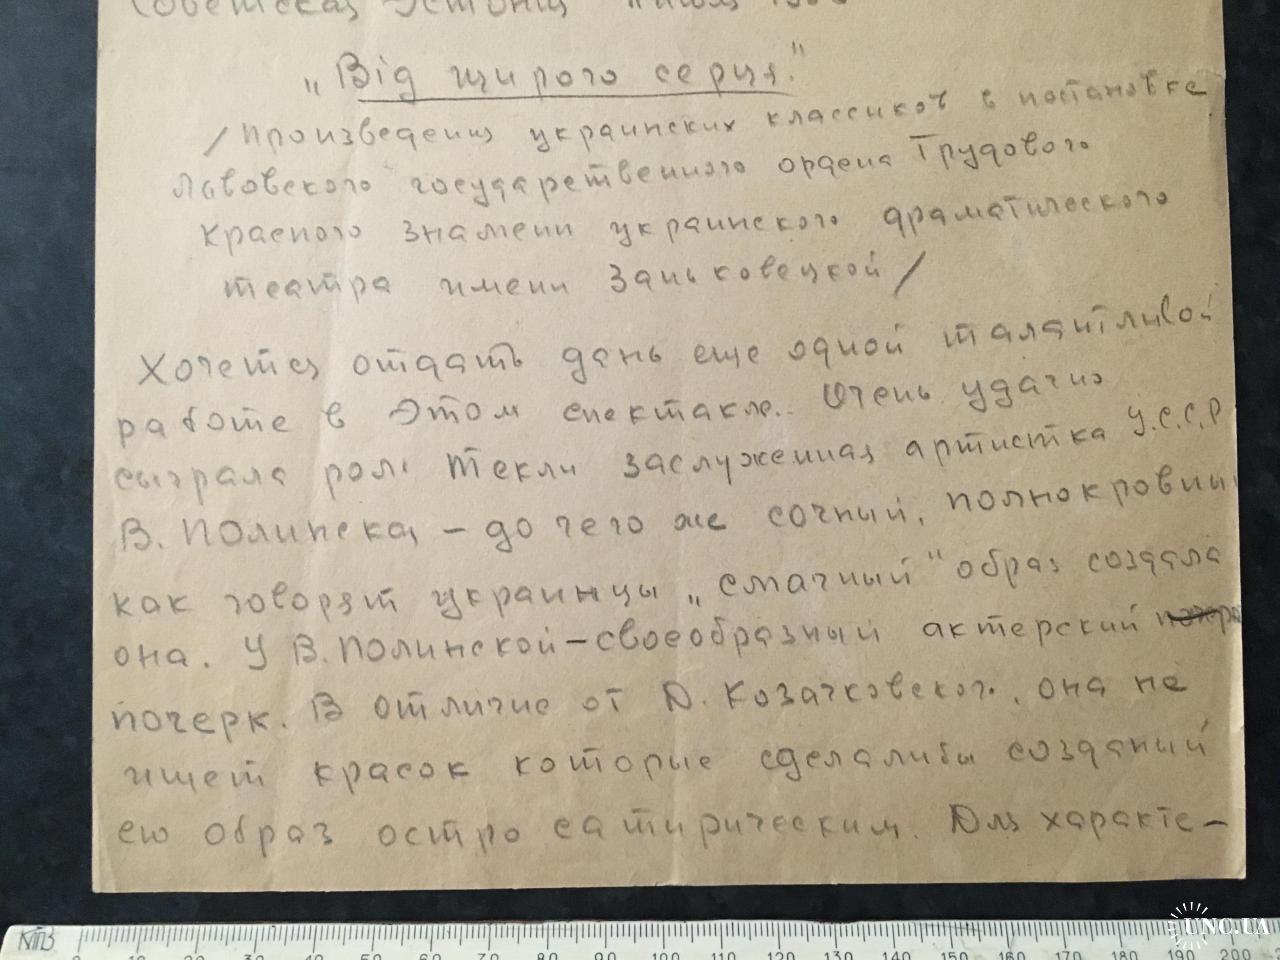 Советская Эстония
„Від щирого серця."
/произведения украинских классиков в постановке
Львовского государственного ордена Трудового
Красного знамени украинского драматического
театра имени Заньковецкой/
Хочется отдать дань еще одной талантливой
работе в этом спектакле. Очень удачно
сыграла роль Текли заслуженная артистка У.С.С.Р
В. Полинская – до чего же сочный, полнокровный
как говорят украинцы „смачный" образ создала
она. У В. Полинской – своеобразный актерский
почерк. В отличие от Д. Козачковского, она не
ищет красок которые сделалибы созданый
ею образ остро сатирическим. Для характе–
КПЗ
0 10 20 30 40 50 60 70 80 90 100 110 120 130 140 150 160 170 180 190 200
UNC.UA